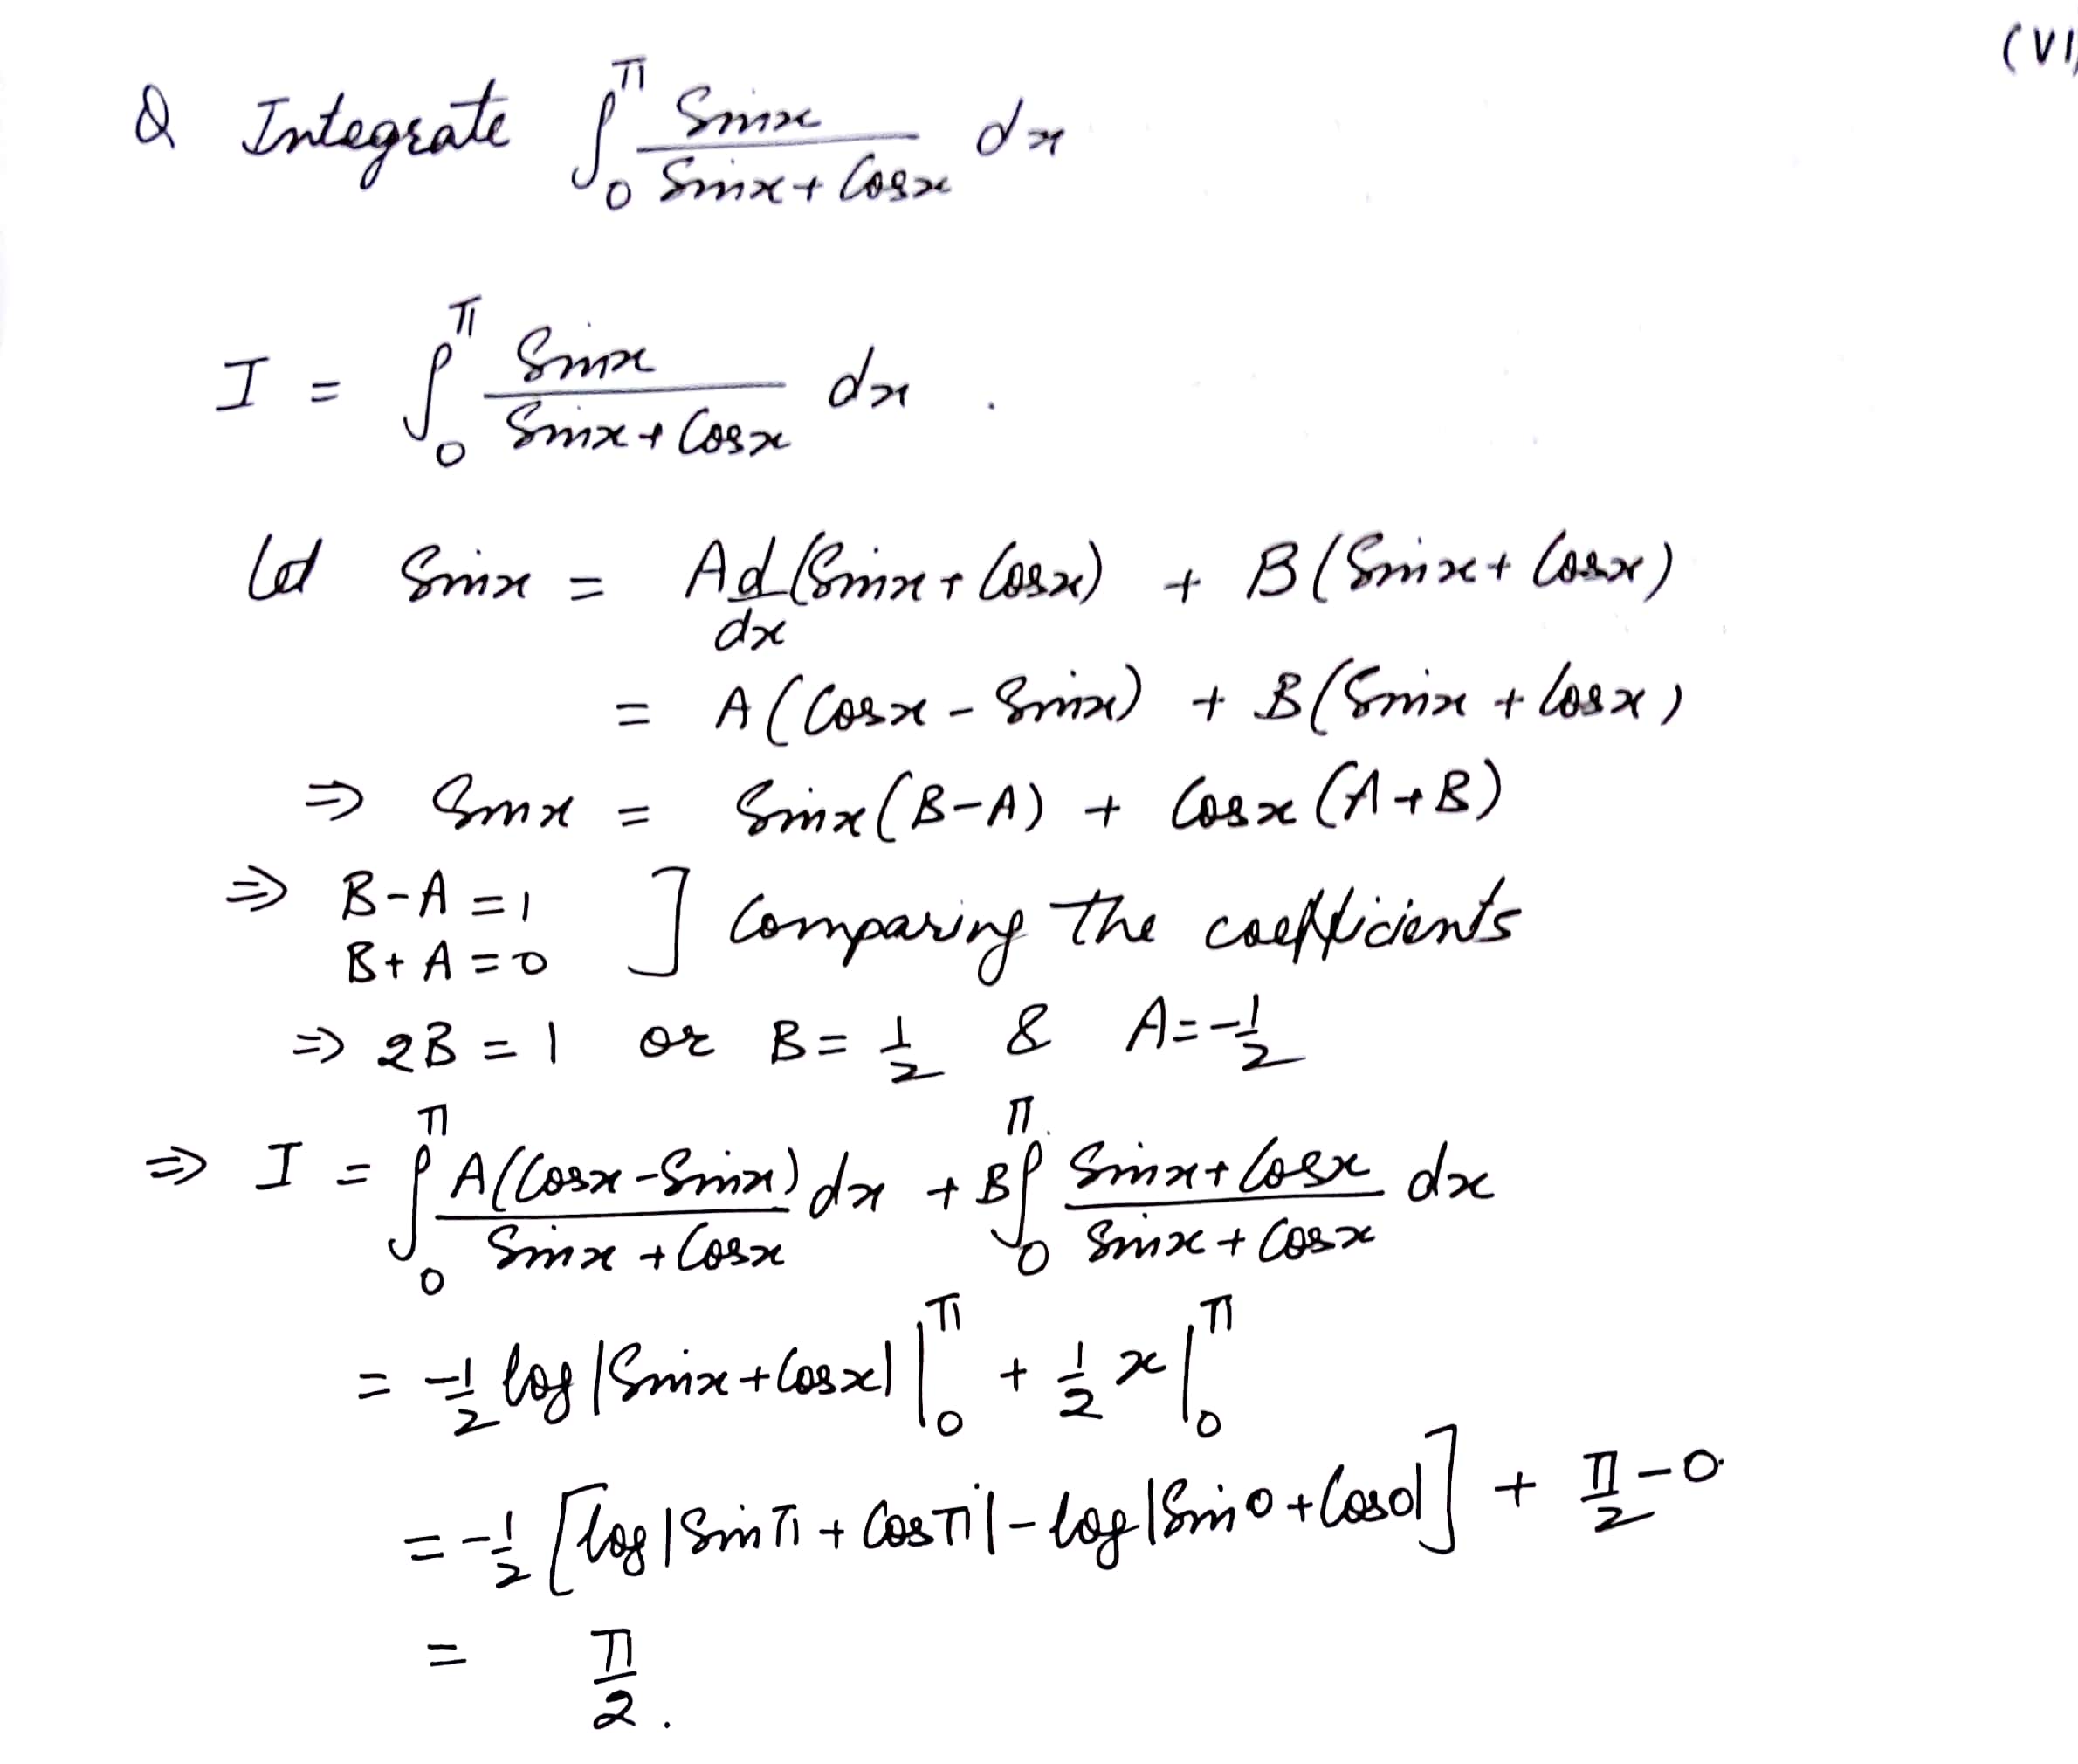 (VI)
Q Integrate ∫₀^π Sinx/(Sinx + Cosx) dx
I = ∫₀^π Sinx/(Sinx + Cosx) dx .
Let Sinx = A d/dx (Sinx + Cosx) + B(Sinx + Cosx)
= A(Cosx - Sinx) + B(Sinx + Cosx)
⇒ Sinx = Sinx(B-A) + Cosx(A+B)
⇒ B-A = 1
B+A = 0 ] Comparing the coefficients
⇒ 2B = 1 or B = 1/2 & A = -1/2
⇒ I = ∫₀^π A(Cosx - Sinx)/(Sinx + Cosx) dx + B∫₀^π (Sinx + Cosx)/(Sinx + Cosx) dx
= -1/2 log|Sinx + Cosx| |₀^π + 1/2 x |₀^π
= -1/2 [log|Sinπ + Cosπ| - log|Sin0 + Cos0|] + π/2 - 0
= π/2 .